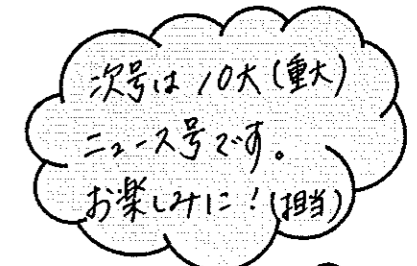 次号は10大(重大)
ニュース号です。
お楽しみに!(担当)